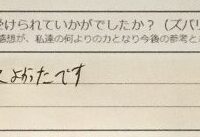 受けられていかがでしたか？（ズバリ
感想が、私達の何よりの力となり今後の参考と
よかったです